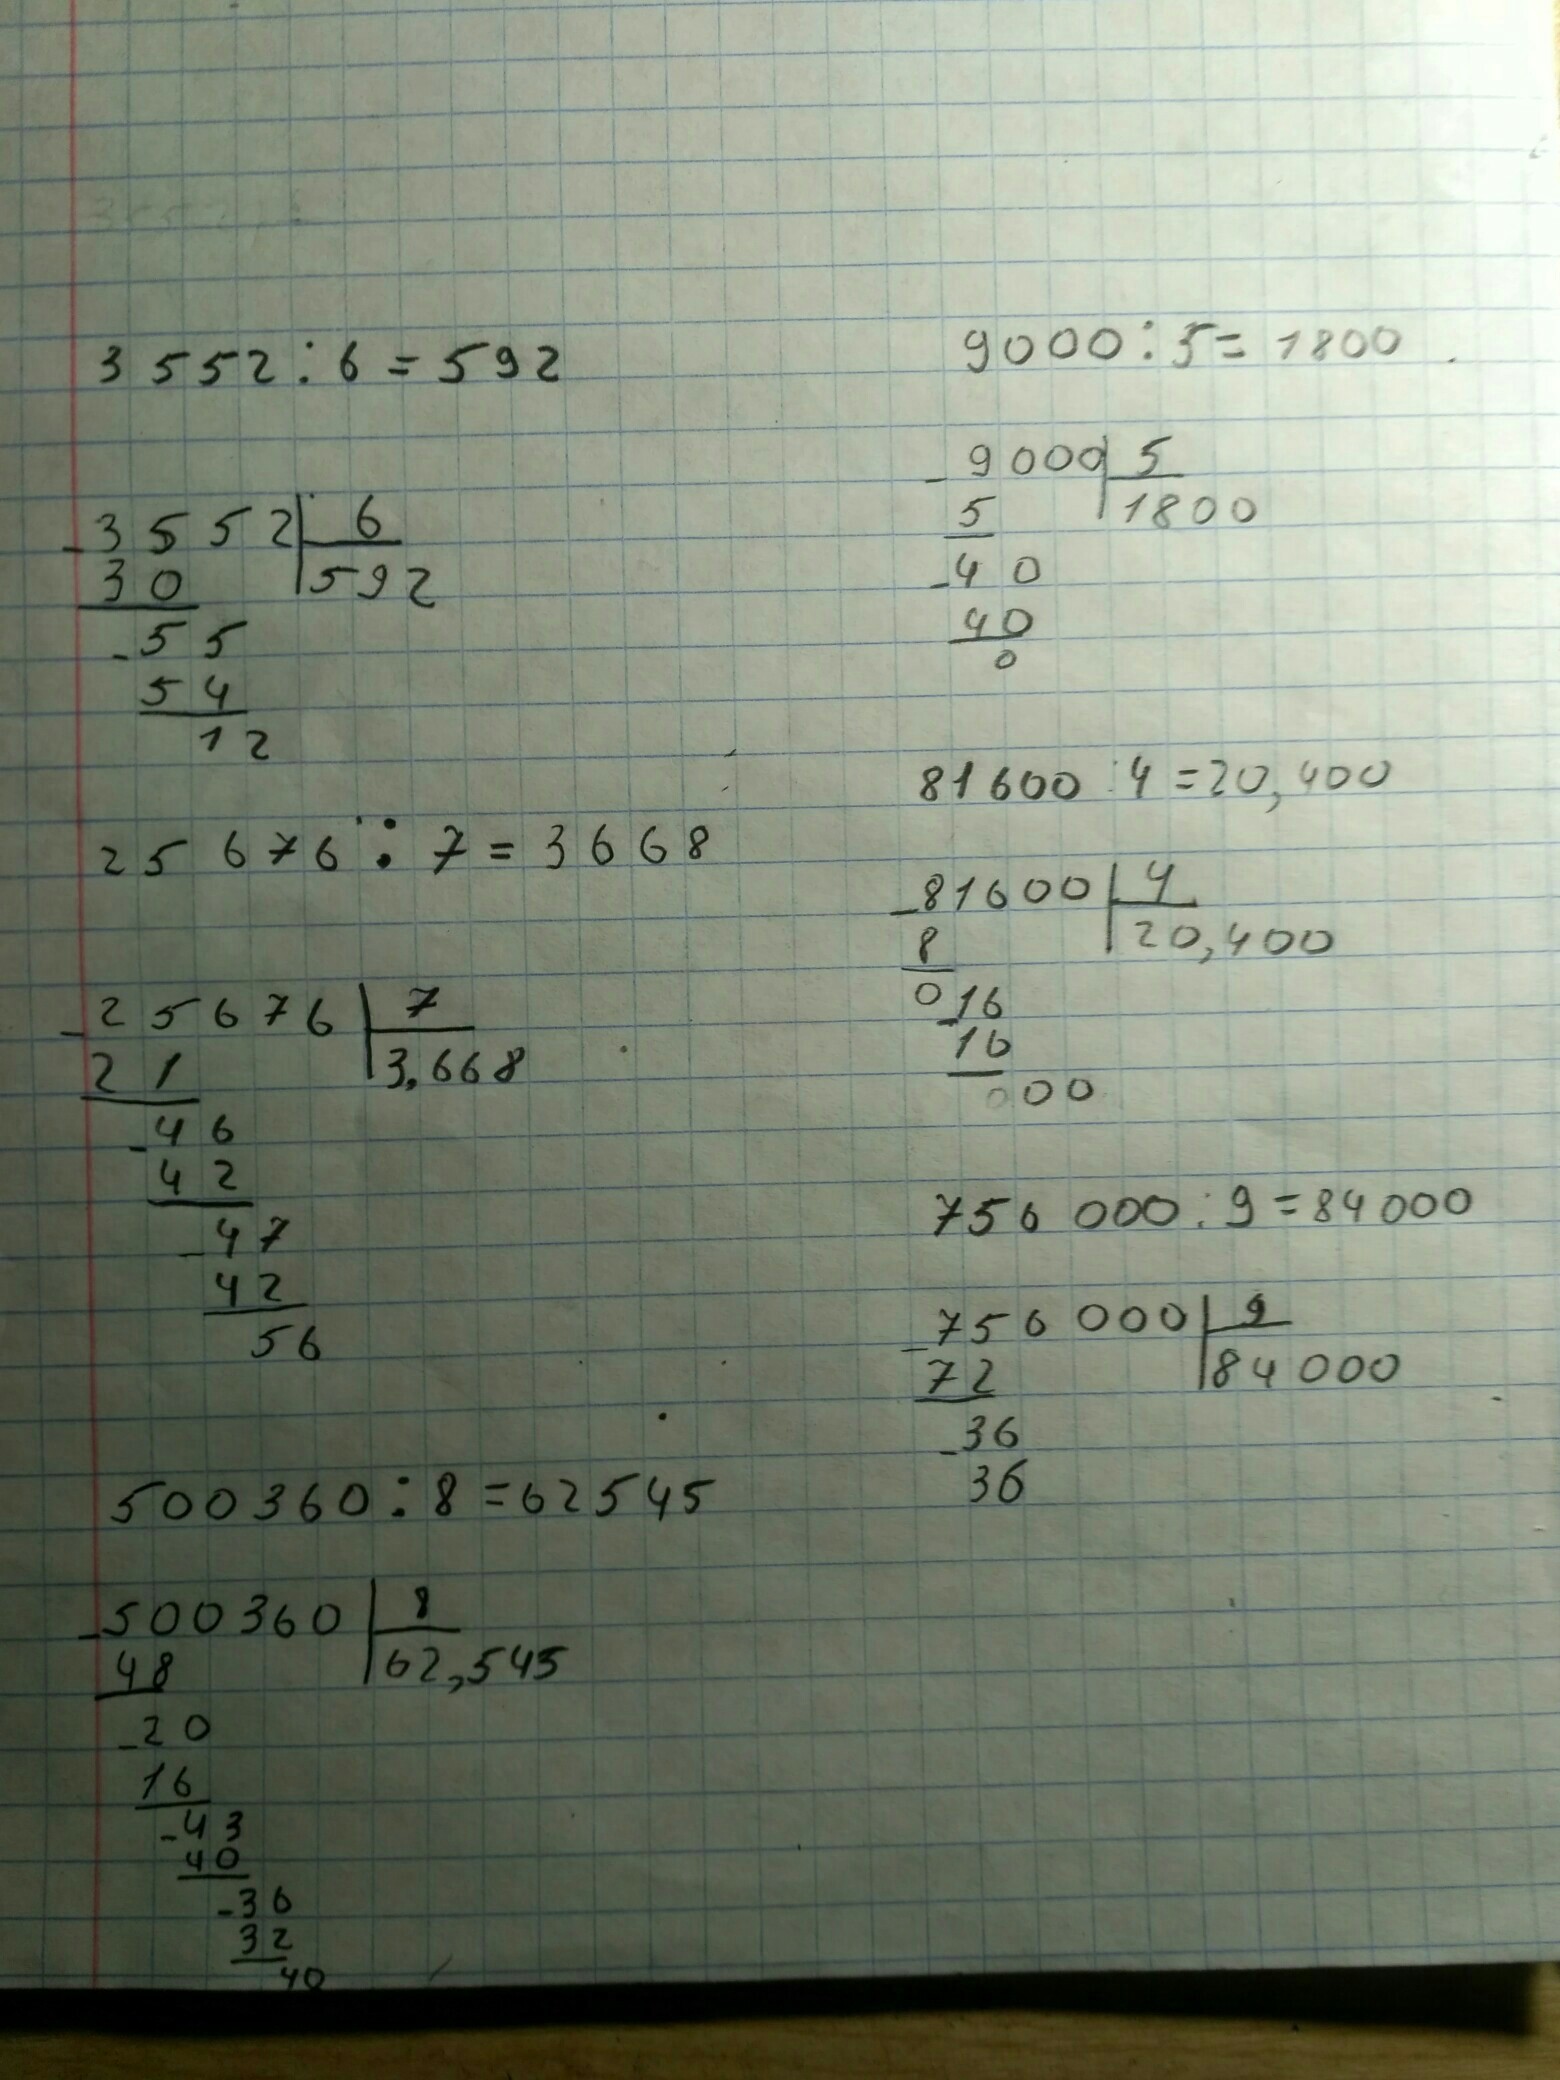 3552:6=592
3552 6
30 592
-55
54
12
25676:7=3668
-25676 7
21 3,668
-46
42
-47
42
56
500360:8=62545
-500360 8
48 62,545
-20
16
-43
40
-36
32
40
9000:5=1800
-9000 5
5 1800
-40
40
0
81600:4=20,400
-81600 4
8 20,400
016
16
000
756 000:9=84000
-756 000 9
72 84000
-36
36